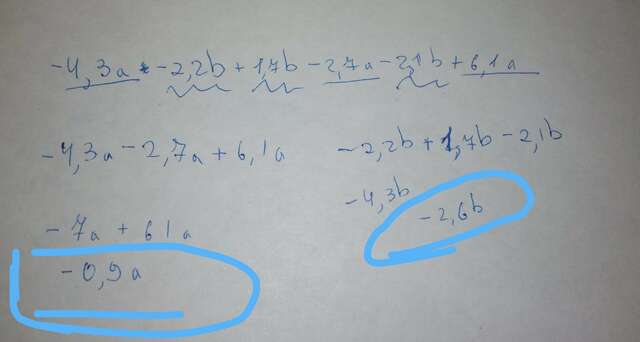 -4,3a - 2,2b + 1,7b - 2,7a - 2,1b + 6,1a
-4,3a - 2,7a + 6,1a
-7a + 61a
-0,9a
-2,2b + 1,7b - 2,1b
-4,3b
-2,6b